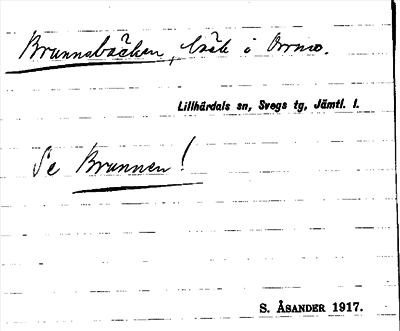 Brunnsbäcken, bäck i Orrmo.
Lillhärdals sn, Svegs tg, Jämtl. l.
Se Brunnen!
S. ÅSANDER 1917.